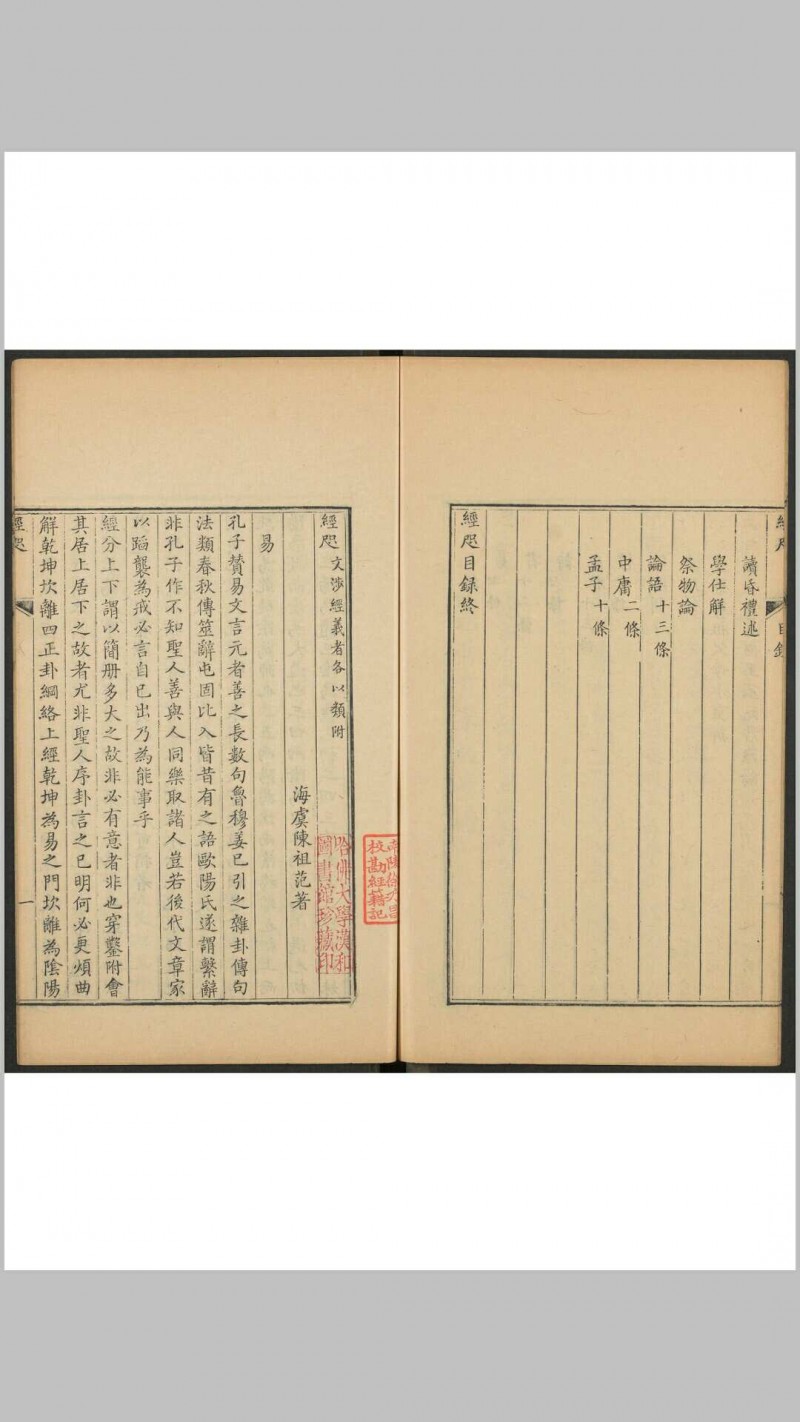 經咫 目錄
讀昏禮述
學仕解
祭物論
論語 十三條
中庸 二條
孟子 十條
經咫目錄終
校勘經籍記
哈佛大學漢和
圖書館珍藏印
經咫 文涉經義者各以類附
海虞陳祖范著
易
孔子贊易文言元者善之長數句魯穆姜已引之雜卦傳句
法類春秋傳筮辭屯固比入皆昔有之語歐陽氏遂謂繫辭
非孔子作不知聖人善與人同樂取諸人豈若後代文章家
以蹈襲為戒必言自己出乃為能事乎
經分上下謂以簡册多大之故非必有意者非也穿鑿附會
其居上居下之故者尤非聖人序卦言之已明何必更煩曲
解乾坤坎離四正卦綱絡上經乾坤為易之門坎離為陰陽
經咫
一